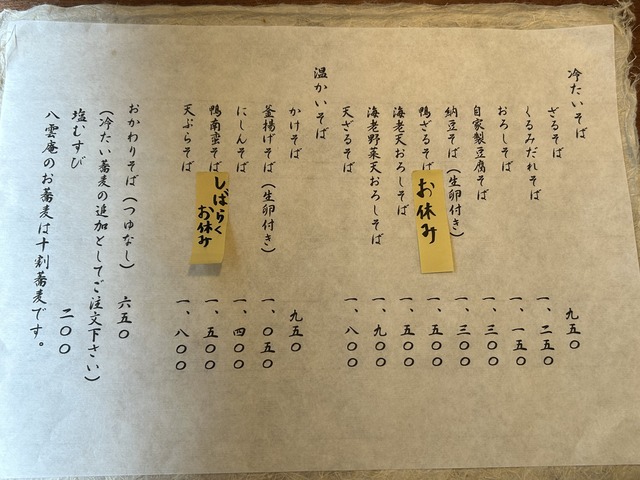 冷たいそば
ざるそば 九五〇
くるみだれそば 一、二五〇
おろしそば 一、一五〇
自家製豆腐そば 一、三〇〇
納豆そば(生卵付き) 一、三〇〇
鴨ざるそば 一、五〇〇
お休み
海老天おろしそば 一、五〇〇
海老野菜天おろしそば 一、九〇〇
天ざるそば 一、八〇〇
温かいそば
かけそば 九五〇
釜揚げそば(生卵付き) 一、〇五〇
にしんそば 一、四〇〇
鴨南蛮そば 一、五〇〇
しばらく
お休み
天ぷらそば 一、八〇〇
おかわりそば(つゆなし) 六五〇
(冷たい蕎麦の追加としてご注文下さい)
塩むすび 二〇〇
八雲庵のお蕎麦は十割蕎麦です。